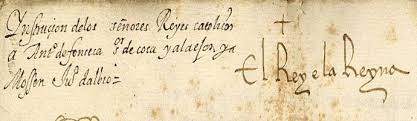 Ynstruçion delos señores Reyes catolicos
a Anto. de fonseca sr. de coca y alaejos, ya
Mossen Juo.
+
El Rey e la Reyna